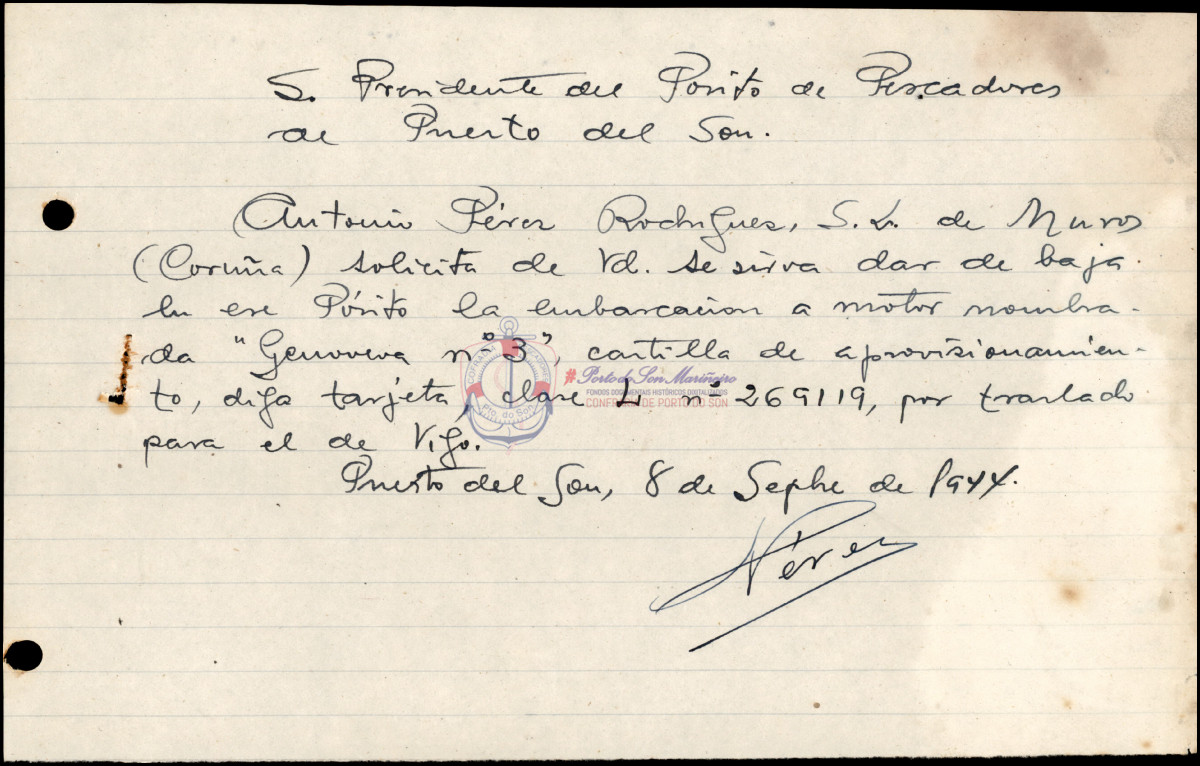 S. Presidente del Pósito de Pescadores
de Puerto del Son.
Antonio Pérez Rodríguez, S. L. de Muros
(Coruña) solicita de Vd. se sirva dar de baja
en ese Pósito la embarcacion a motor nombra-
da "Genoveva nº 3", cartilla de aprovisionamien-
to, diga tarjeta, clase L nº 269119, por traslado
para el de Vigo.
Puerto del Son, 8 de Sepbre de 1944.
Pérez
#Porto do Son Mariñeiro
FONDOS DOCUMENTAIS HISTÓRICOS DIGITALIZADOS
CONFRARÍA DE PORTO DO SON
Pto. do Son